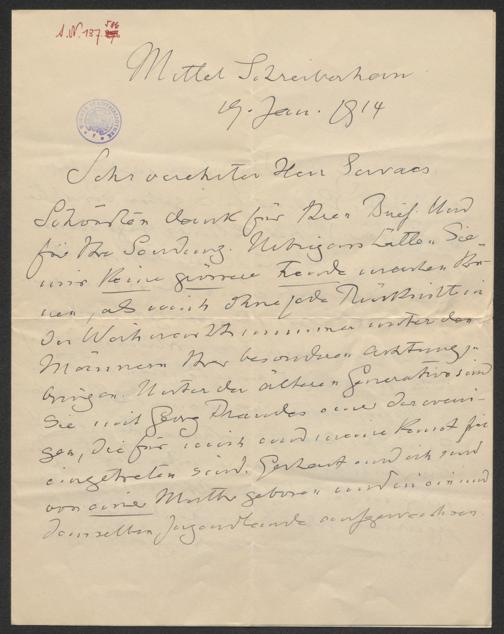 I.N. 137.586
Mittel Schreiberhau
19. Jan. 1914
Sehr verehrter Herr Servaes
Schönsten Dank für Ihren Brief. Und
für Ihre Sendung. Uebrigens hätten Sie
mir keine grössere Freude machen kön-
nen, als mich ohne jede Rücksicht in
der Weihnachtsnummer unter den
Männern Ihrer besonderen Achtung zu
bringen. Unter der älteren Generation sind
Sie mit Georg Brandes einer der weni-
gen, die für mich und meine Kunst
eingetreten sind. Gerhart und ich sind
von einer Mutter geboren und in ein und
demselben Jugendlande aufgewachsen